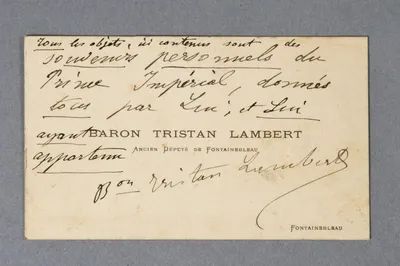 Tous les objets, ici contenus sont des
souvenirs personnels du
Prince Impérial, donnés
tous par Lui, et Lui
ayant
BARON TRISTAN LAMBERT
appartenu
ANCIEN DÉPUTÉ DE FONTAINEBLEAU
Bon Tristan Lambert
FONTAINEBLEAU